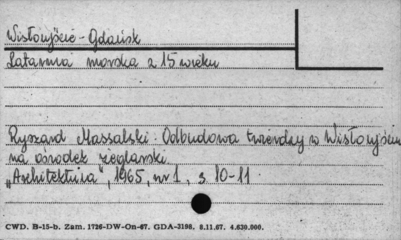 Wisłoujście - Gdańsk
Latarnia morska z 15 wieku
Ryszard Massalski: Odbudowa twierdzy w Wisłoujściu
na ośrodek żeglarski.
„Architektura", 1965, nr 1, s. 10-11
CWD. B-15-b. Zam. 1726-DW-On-67. GDA-3198. 9.11.67. 4.630.000.